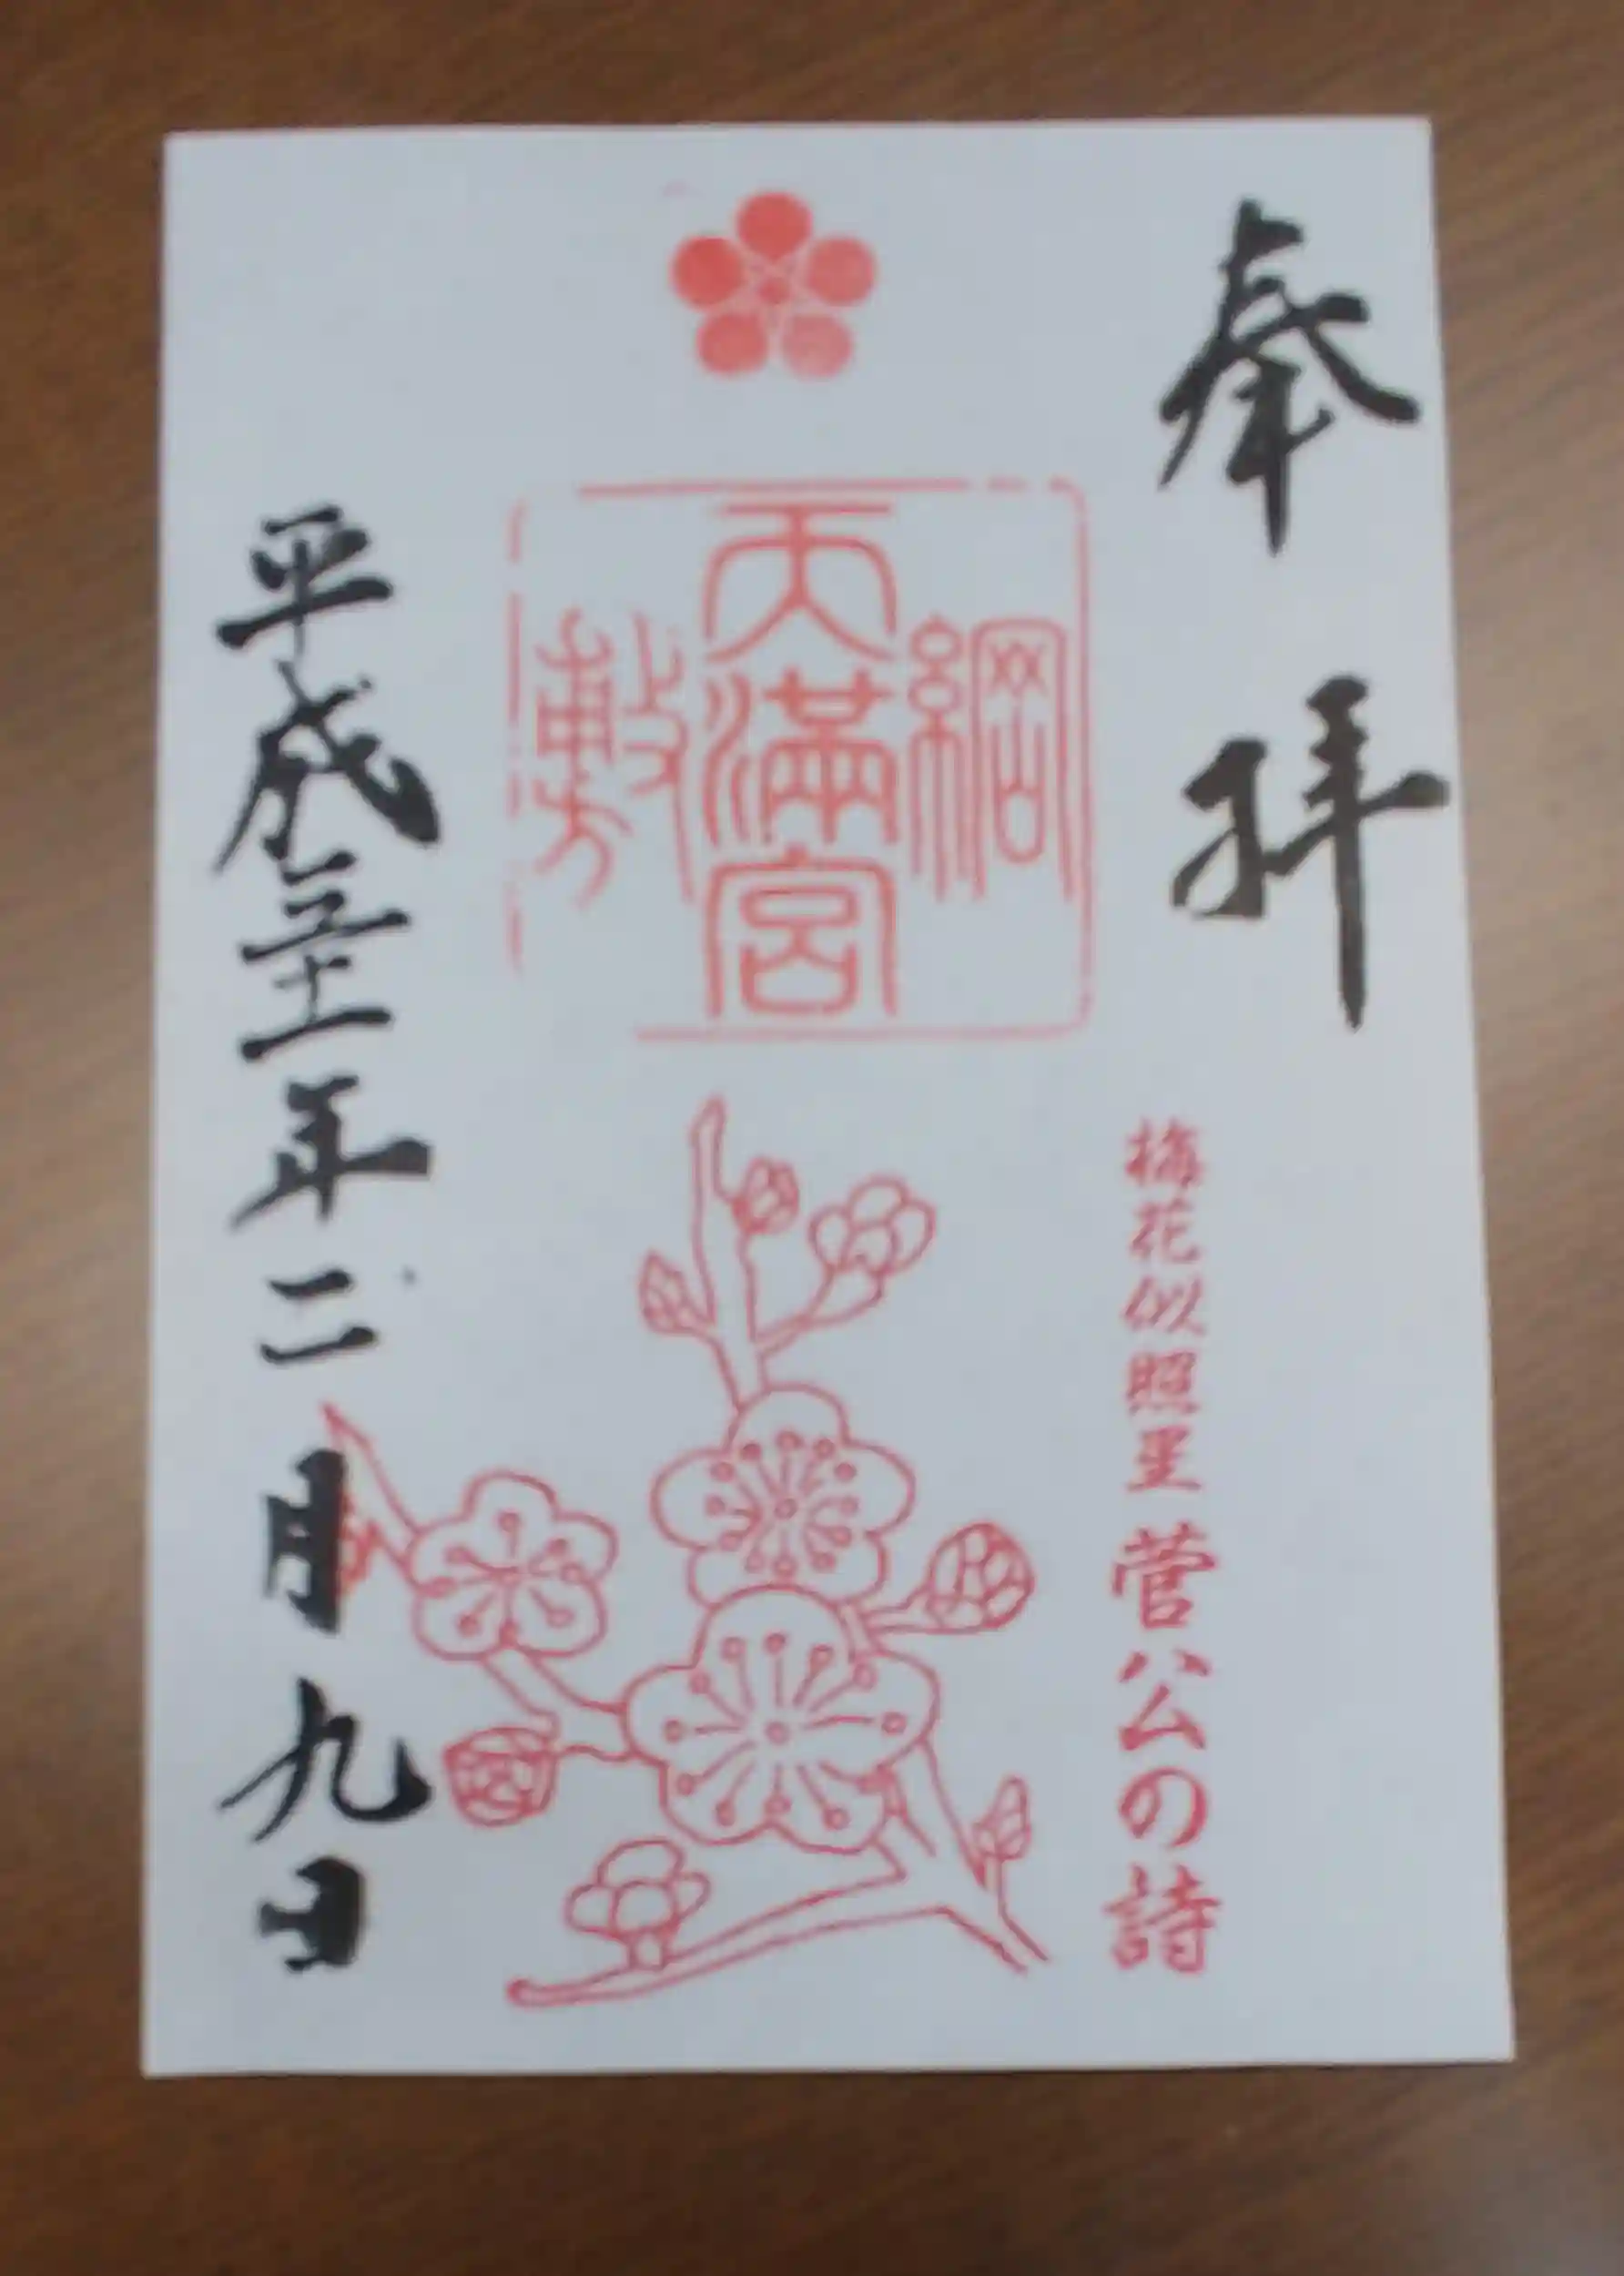 奉拝
梅花似照星 菅公の詩
綱
天満宮
敷
平成三十一年二月九日